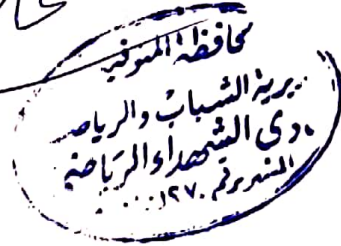 محافظة المنوفية
مديرية الشباب والرياضة
نادي الشهداء الرياضي
المشهر برقم ١٢٧٠